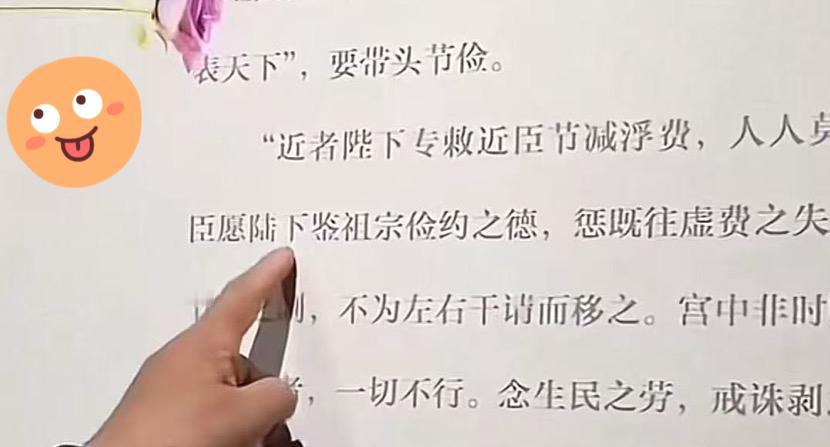 表天下”，要带头节俭。
“近者陛下专敕近臣节减浮费，人人莫
臣愿陆下鉴祖宗俭约之德，惩既往虚费之失
制，不为左右干请而移之。宫中非时
者，一切不行。念生民之劳，戒诛剥